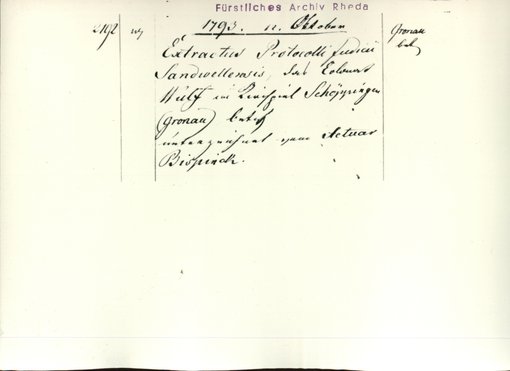 Fürstliches Archiv Rheda
2192
1793. 11. Oktober
Gronau
bet.
Extractus Protocolli judicii
Sandwellensis, das Colonat
Wulf im Kirchspiel Schöppingen
(Gronau) betr.
unterzeichnet vom Actuar
Bispinck.